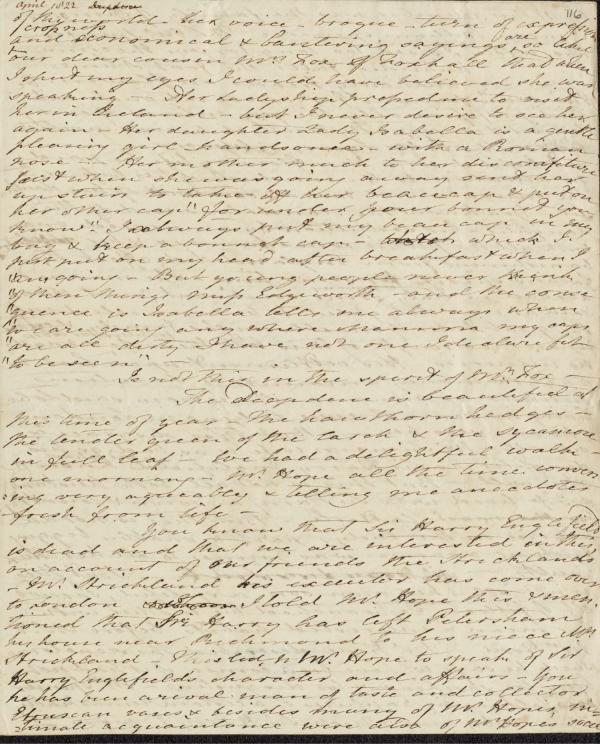 April 1822 Deepdene
116
of the world - her voice brogue - turn of expression
crossness
and economical & bantering sayings are so like
our dear cousin Mrs Fox of Foxhall that when
I shut my eyes I could have believed she was
speaking - Her Ladyship proposed me to visit
her in Ireland - but I never desire to see her
again - Her daughter Lady Isabella is a gentle
pleasing girl - handsome - with a Roman
nose - Her mother much to her discomfiture
just when she was going away sent her
up stairs to take off her beau cap & put on
her other cap "for under your bonnet you
know" I always put my beau cap in my
bag & keep a bonnet cap - which I
just put on my head after breakfast when I
"am going - But young people never think
"of them things miss Edgeworth - and the conse
"quence is Isabella tells me always when
"we are going any where mamma my caps
"are all dirty I have not one I declare fit
"to be seen" -
Is not this in the spirit of Mrs Fox -
The Deepdene is beautiful at
this time of year - The hawthorn hedges -
the tender green of the larch & the sycamore
in full leaf - We had a delightful walk -
one morning - Mr. Hope all the time convers
:ing very agreeably & telling me anecdotes
- fresh from life -
You know that Sir Harry Englefield
is dead and that we are interested in this
on account of our friends the Stricklands
- Mr. Strickland his executor has come over
to London I told Mr. Hope this & men
tioned that Sir Harry has left Petersham
his house near Richmond to his niece Mrs
Strickland This led Mr. Hope to speak of Sir
Harry Englefield's character and affairs - You
he has been a rival man of taste and collector
Etruscan vases & besides many of Mr. Hopes in
:timate acquaintance were also of Mr Hopes soci